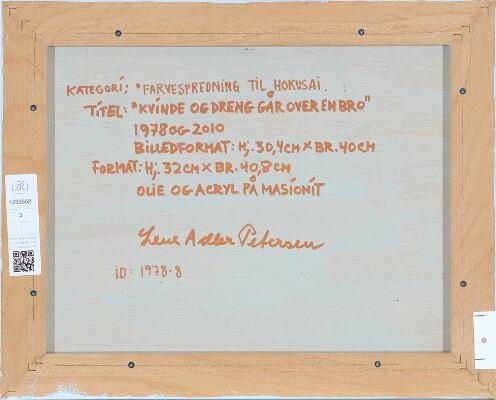 KATEGORI; "FARVESPREDNING TIL HOKUSAI.
TITEL: "KVINDE OG DRENG GÅR OVER EN BRO"
1978 OG 2010
BILLEDFORMAT: Hj. 30,4 CM × BR. 40 CM
FORMAT: Hj. 32 CM × BR. 40,8 CM
OLIE OG ACRYL PÅ MASIONIT
Lene Adler Petersen
iD: 1978-8
1233502
3